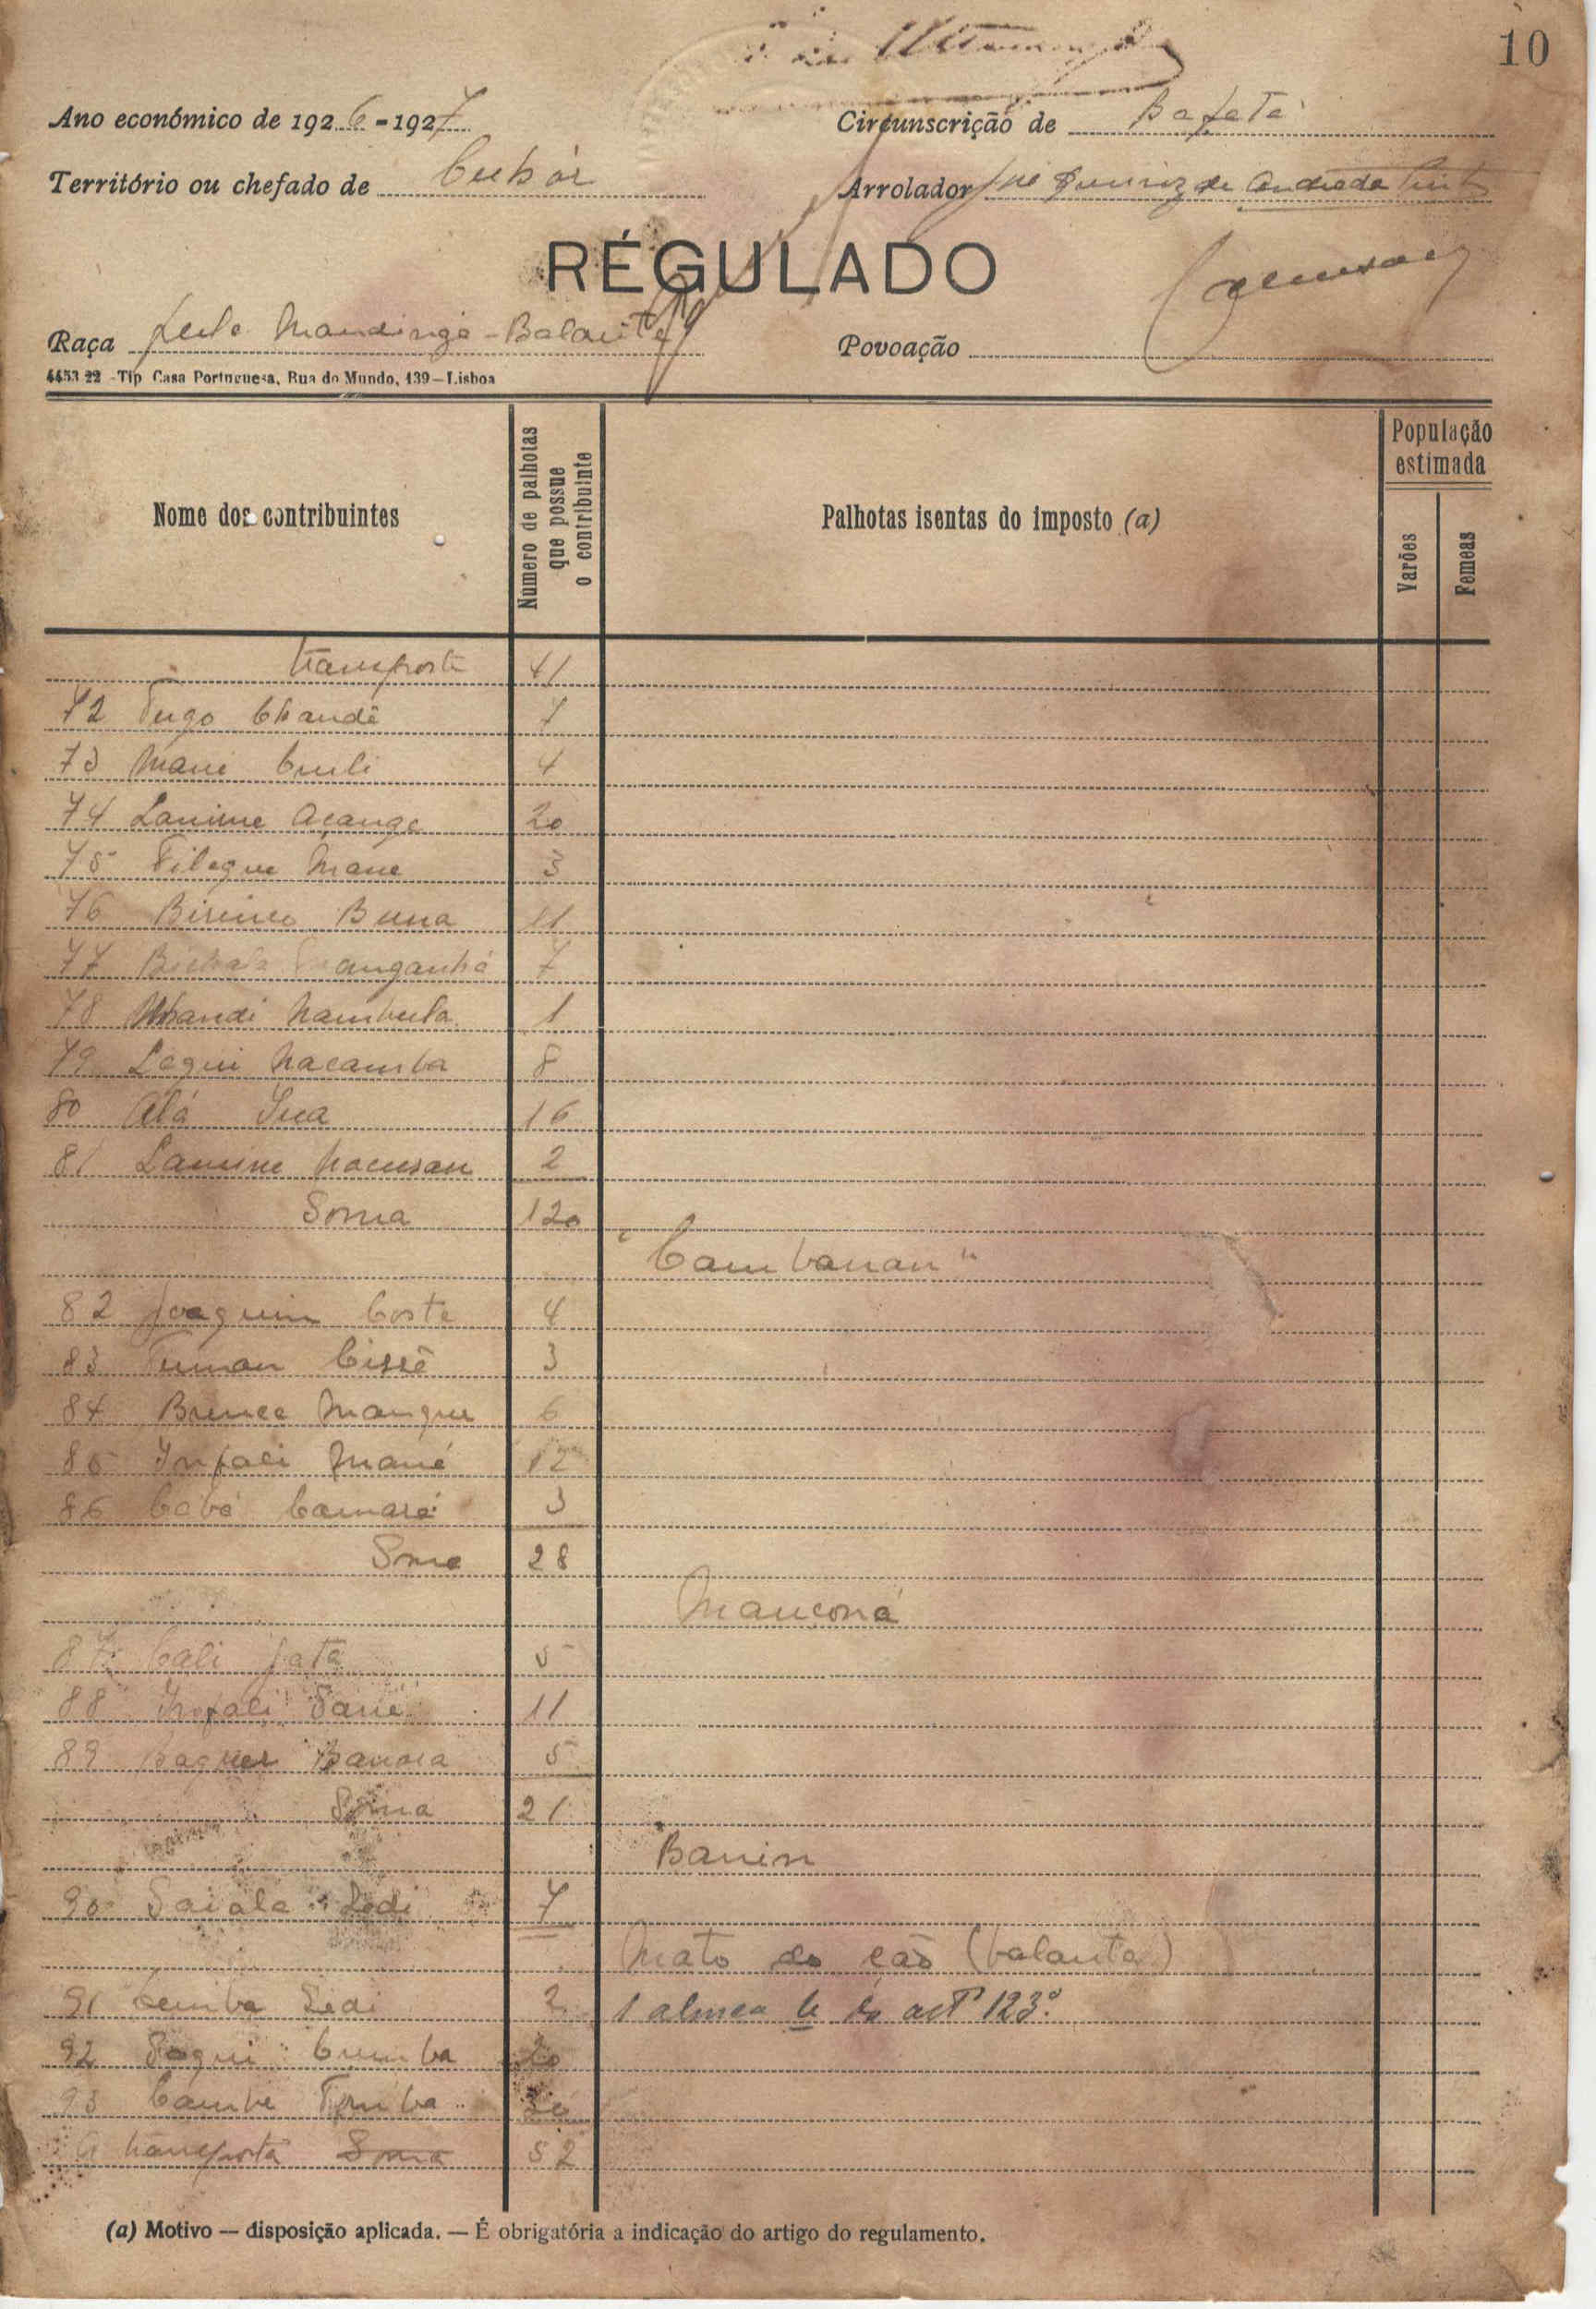 10
Ano económico de 1926-1927
Circunscrição de Bafatá
Território ou chefado de Cuhór
Arrolador José Queiroz de Andrade Pinto
RÉGULADO
Raça fula Mandinga-Balanta
Povoação
4453 22 -Tip Casa Portuguesa, Rua do Mundo, 139-Lisboa
Nome dos contribuintes
Numero de palhotas que possue o contribuinte
Palhotas isentas do imposto (a)
População estimada
Varões
Femeas
transporte 41
72 Tugo Chandê 7
73 Mané Cuuli 4
74 Lamine Açanga 20
75 Filague Mane 3
76 Birimo Buna 11
77 anganhá 7
78 Mandi Nambula 1
79 Legui Nacamba 8
80 Alá Sua 16
81 Lamine Nacusan 2
Soma 120
"Cambanan"
82 Joaquim Costa 4
83 Tuman Cissê 3
84 Brema Mangue 6
85 Infali Mané 12
86 Cebá Camará 3
Soma 28
Mançoná
87 Cali Jatá 5
88 Infali Sané 11
89 Baguer Banora 5
Soma 21
Banin
90 Saiala Ledi 7
Mato do cão (balanta)
91 Semba Ledi 2 1 alinea b do artº 123º.
92 Segui Cumba 20
93 Cambe Tomba 30
transporta Soma 52
(a) Motivo — disposição aplicada. — É obrigatória a indicação do artigo do regulamento.